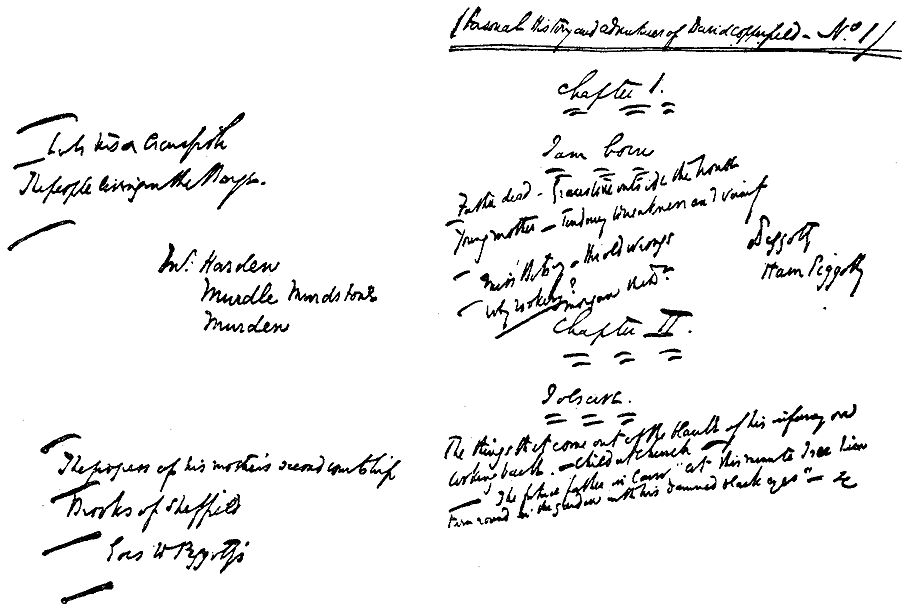 (Personal History and adventures of David Copperfield - No. 1)
Chapter I.
I am born
Father dead - Gravestone outside the house
Young mother - tendency to weakness and vanity
Miss Betsey - the old wrongs
Why Rookery?
Peggotty
Ham Peggotty
Chapter II.
I observe.
The things that come out of the blank of his infancy on
looking back. - Child at church -
The future father in law "at this minute I see him
turn round in the garden with his damned black eyes" - &c
The people living in the
Mr. Harden
Murdle Murdstone
Murden
The progress of his mother's second courtship
Brooks of Sheffield
Goes to Peggotty's